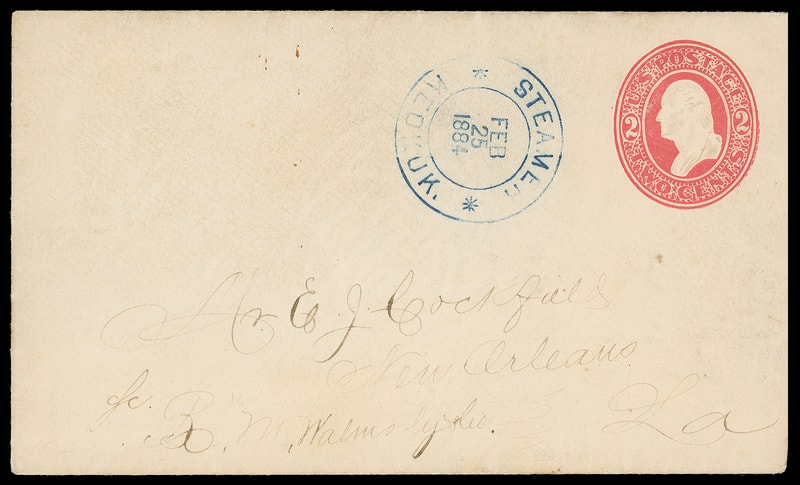 STEAMER
FEB
25
1884
KEOKUK.
U.S. POSTAGE
2 2
TWO CENTS
Mr. E. J. Cockfield
New Orleans
La
R. M. Walmsly